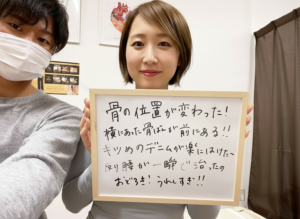 骨の位置が変わった!
横にあった骨ばんが前にある!!
キツめのデニムが楽にはけた〜
反り腰が一瞬で治ったの
おどろき!うれしすぎ!!